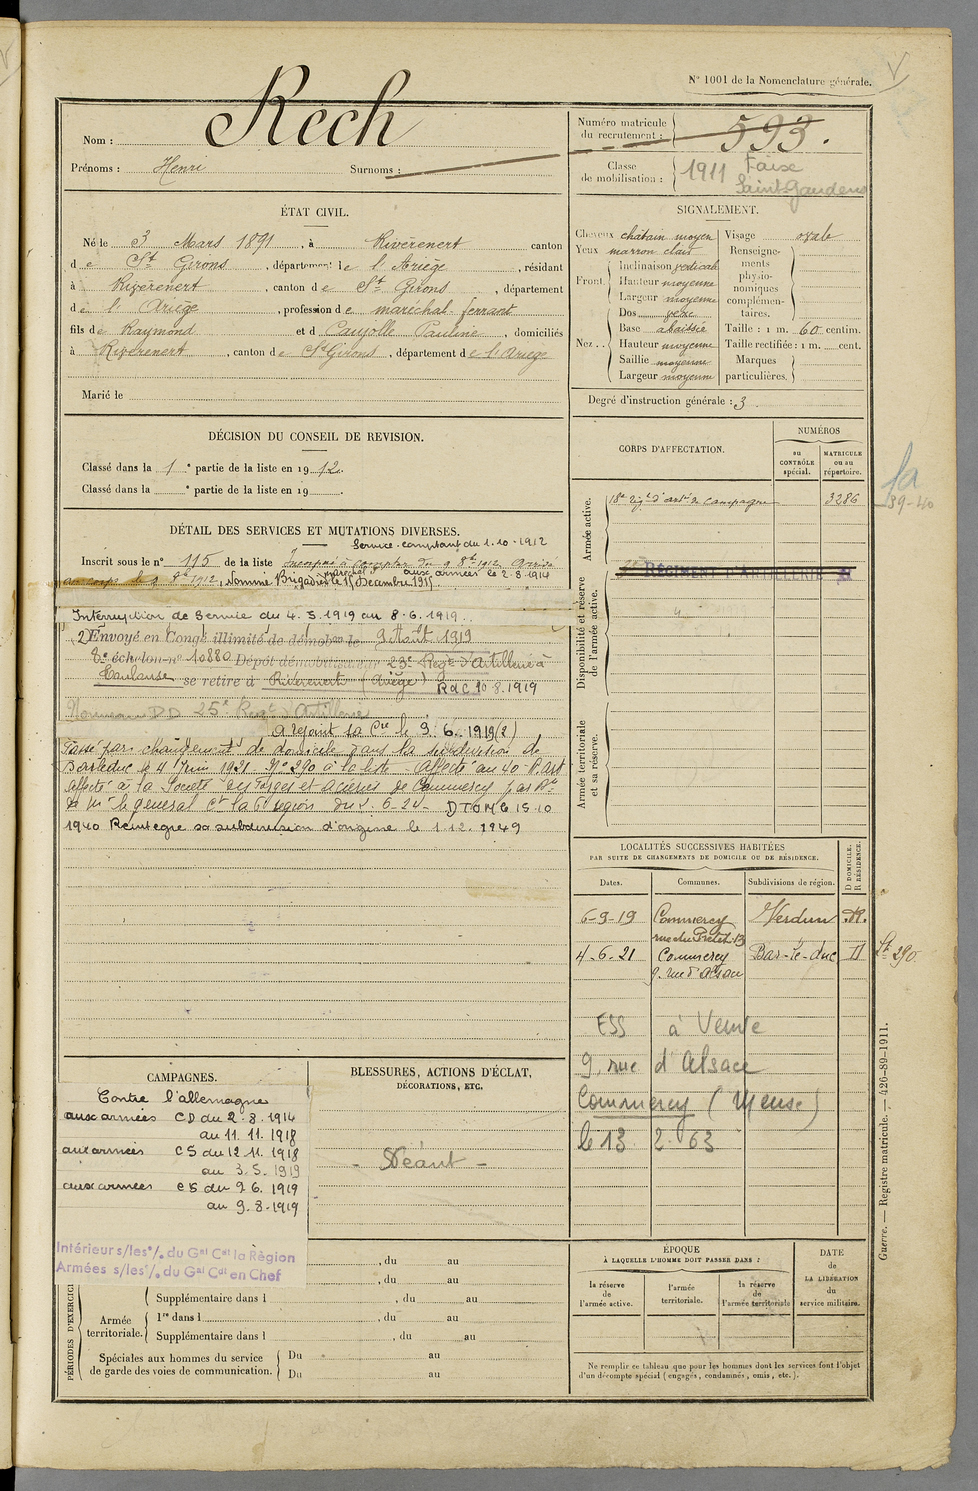 N° 1001 de la Nomenclature générale.
Nom : Rech
Prénoms : Henri Surnoms :
Numéro matricule du recrutement : 593.
Classe de mobilisation : 1911
Saint-Gaudens
ÉTAT CIVIL.
Né le 3 Mars 1891, à Rivèrenert canton
de St Girons, département de l'Ariège, résidant
à Rivèrenert, canton de St Girons, département
de l'Ariège, profession de maréchal ferrant
fils de Raymond et de Caujolle Pauline, domiciliés
à Rivèrenert, canton de St Girons, département de l'Ariège
Marié le
SIGNALEMENT.
Cheveux chatain moyen
Yeux marron clair
Front. Inclinaison verticale
Hauteur moyenne
Largeur moyenne
Nez.. Dos
Base abaissée
Hauteur moyenne
Saillie moyenne
Largeur moyenne
Visage ovale
Renseignements physionomiques complémentaires.
Taille : 1 m. 60 centim.
Taille rectifiée : 1 m. cent.
Marques particulières.
Degré d'instruction générale : 3
DÉCISION DU CONSEIL DE REVISION.
Classé dans la 1e partie de la liste en 1912.
Classé dans la e partie de la liste en 19
DÉTAIL DES SERVICES ET MUTATIONS DIVERSES.
Service comptant du 1-10-1912
Inscrit sous le n° 115 de la liste Incorporé à compter du 9 8bre 1912 Arrivé
au corps le 9 8bre 1912, Nommé Brigadier le 15 Décembre 1915
aux armées le 2-8-1914
Interruption de Service du 4.5.1919 au 8-6-1919
(2) Envoyé en Congé illimité de démobon le 9 Août 1919
8e échelon-no 10880 Dépôt démobilisateur 23e Regt d'Artillerie à
Toulouse se retire à Rivèrenert (Ariège) RdC 10-8-1919
Nouveau DD 25e Regt d'Artillerie
a rejoint sa Cie le 9.6.1919 (2)
Passé par changement de domicile dans la subdivision de
Bar le duc le 4 Juin 1921. N° 290 à la liste - Affecté au 40 R. Art
Affecté à la Société des Forges et aciéries de Commercy par
de Mr le général Ct la 6e région du 2-6-24 - DTOME 15-10
1940 Réintègre sa subdivision d'origine le 1.12.1949
CORPS D'AFFECTATION.
NUMÉROS
au CONTRÔLE spécial.
MATRICULE ou au répertoire.
Armée active.
18e Rgt d'artie de campagne 3286
Disponibilité et réserve de l'armée active.
RÉGIMENT D'ARTILLERIE
Armée territoriale et sa réserve.
39-40
LOCALITÉS SUCCESSIVES HABITÉES
PAR SUITE DE CHANGEMENTS DE DOMICILE OU DE RÉSIDENCE.
Dates. Communes. Subdivisions de région. D DOMICILE. R RÉSIDENCE.
6-9-19 Commercy Verdun R.
4-6-21 Commercy Bar-le-duc D
9. rue d'Alsace
290
ESS à Vente
9, rue d'Alsace
Commercy (Meuse)
le 13 2 63
CAMPAGNES.
Contre l'allemagne
aux armées CD du 2.8.1914
au 11.11.1918
aux armées CS du 12.11.1918
au 3.5.1919
aux armées CS du 9 6.1919
au 9.8.1919
Intérieur s/les % du Gal Cdt la Région
Armées s/les % du Gal Cdt en Chef
BLESSURES, ACTIONS D'ÉCLAT,
DÉCORATIONS, ETC.
- Néant -
PÉRIODES D'EXERCICE
, du au
, du au
Supplémentaire dans l , du au
Armée territoriale. 1re dans l , du au
Supplémentaire dans l , du au
Spéciales aux hommes du service de garde des voies de communication. Du au
Du au
ÉPOQUE
À LAQUELLE L'HOMME DOIT PASSER DANS :
la réserve de l'armée active.
l'armée territoriale.
la réserve de l'armée territoriale
DATE de LA LIBÉRATION du service militaire.
Ne remplir ce tableau que pour les hommes dont les services font l'objet
d'un décompte spécial (engagés, condamnés, omis, etc.).
Guerre. — Registre matricule. — 426-89-1911.